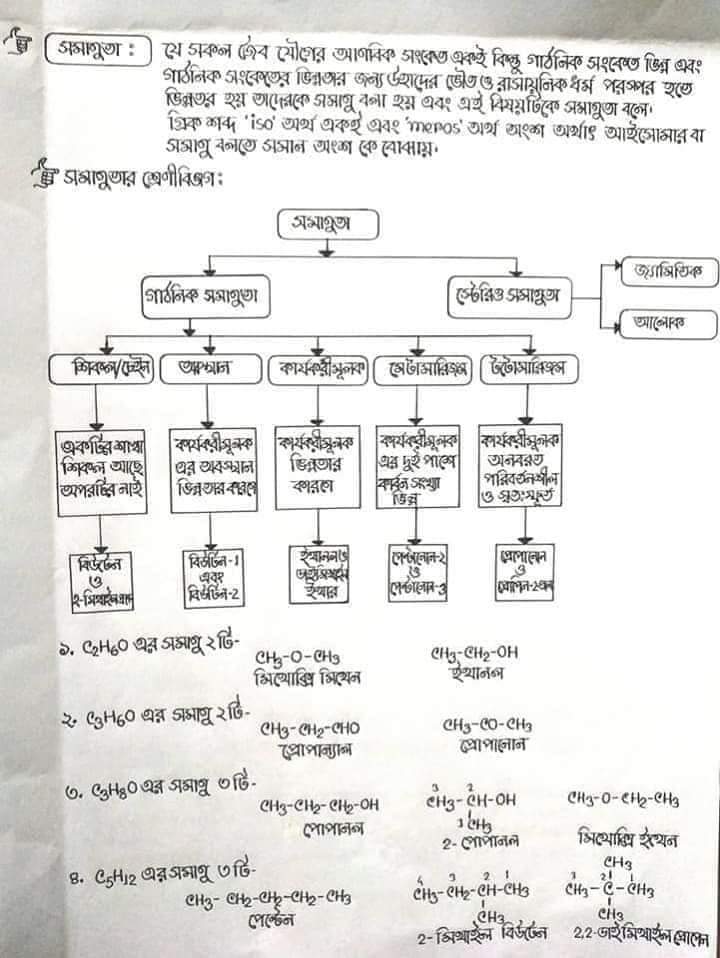 সমাণুতা :
যে সকল জৈব যৌগের আণবিক সংকেত একই কিন্তু গাঠনিক সংকেত ভিন্ন এবং
গাঠনিক সংকেতের ভিন্নতার জন্য উহাদের ভৌত ও রাসায়নিক ধর্ম পরস্পর হতে
ভিন্নতর হয় তাদেরকে সমাণু বলা হয় এবং এই বিষয়টিকে সমাণুতা বলে।
গ্রিক শব্দ 'iso' অর্থ একই এবং 'meros' অর্থ অংশ অর্থাৎ আইসোমার বা
সমাণু বলতে সমান অংশ কে বোঝায়।
সমাণুতার শ্রেণীবিভাগ :
সমাণুতা
গাঠনিক সমাণুতা
স্টেরিও সমাণুতা
জ্যামিতিক
আলোক
শিকল/চেইন
অবস্থান
কার্যকরীমূলক
মেটামারিজম
টটোমারিজম
একটির শাখা
শিকল আছে
অপরটির নাই
কার্যকরীমূলক
এর অবস্থান
ভিন্নতার কারণে
কার্যকরীমূলক
ভিন্নতার
কারণে
কার্যকরীমূলক
এর দুই পাশে
কার্বন সংখ্যা
ভিন্ন
কার্যকরীমূলক
অনবরত
পরিবর্তনশীল
ও স্বতঃস্ফূর্ত
বিউটেন
ও
বিউটিন-1
এবং
বিউটিন-2
ইথানল ও
ডাইমিথাইল
ইথার
পেন্টানোন-2
ও
পেন্টানোন-3
প্রোপানোন
ও
১. C2H6O এর সমাণু ২টি-
CH3-O-CH3
CH3-CH2-OH
মিথোক্সি মিথেন
ইথানল
২. C3H6O এর সমাণু ২টি-
CH3-CH2-CHO
CH3-CO-CH3
প্রোপান্যাল
প্রোপানোন
৩. C3H8O এর সমাণু ৩টি-
CH3-CH2-CH2-OH
3 2
CH3-CH-OH
1 CH3
CH3-O-CH2-CH3
পোপানল
2-পোপানল
মিথোক্সি ইথেন
৪. C5H12 এর সমাণু ৩টি-
CH3- CH2-CH2-CH2-CH3
4 3 2 1
CH3-CH2-CH-CH3
CH3
CH3
3 2 1
CH3-C-CH3
CH3
পেন্টেন
2-মিথাইল বিউটেন
2,2-ডাইমিথাইল প্রোপেন